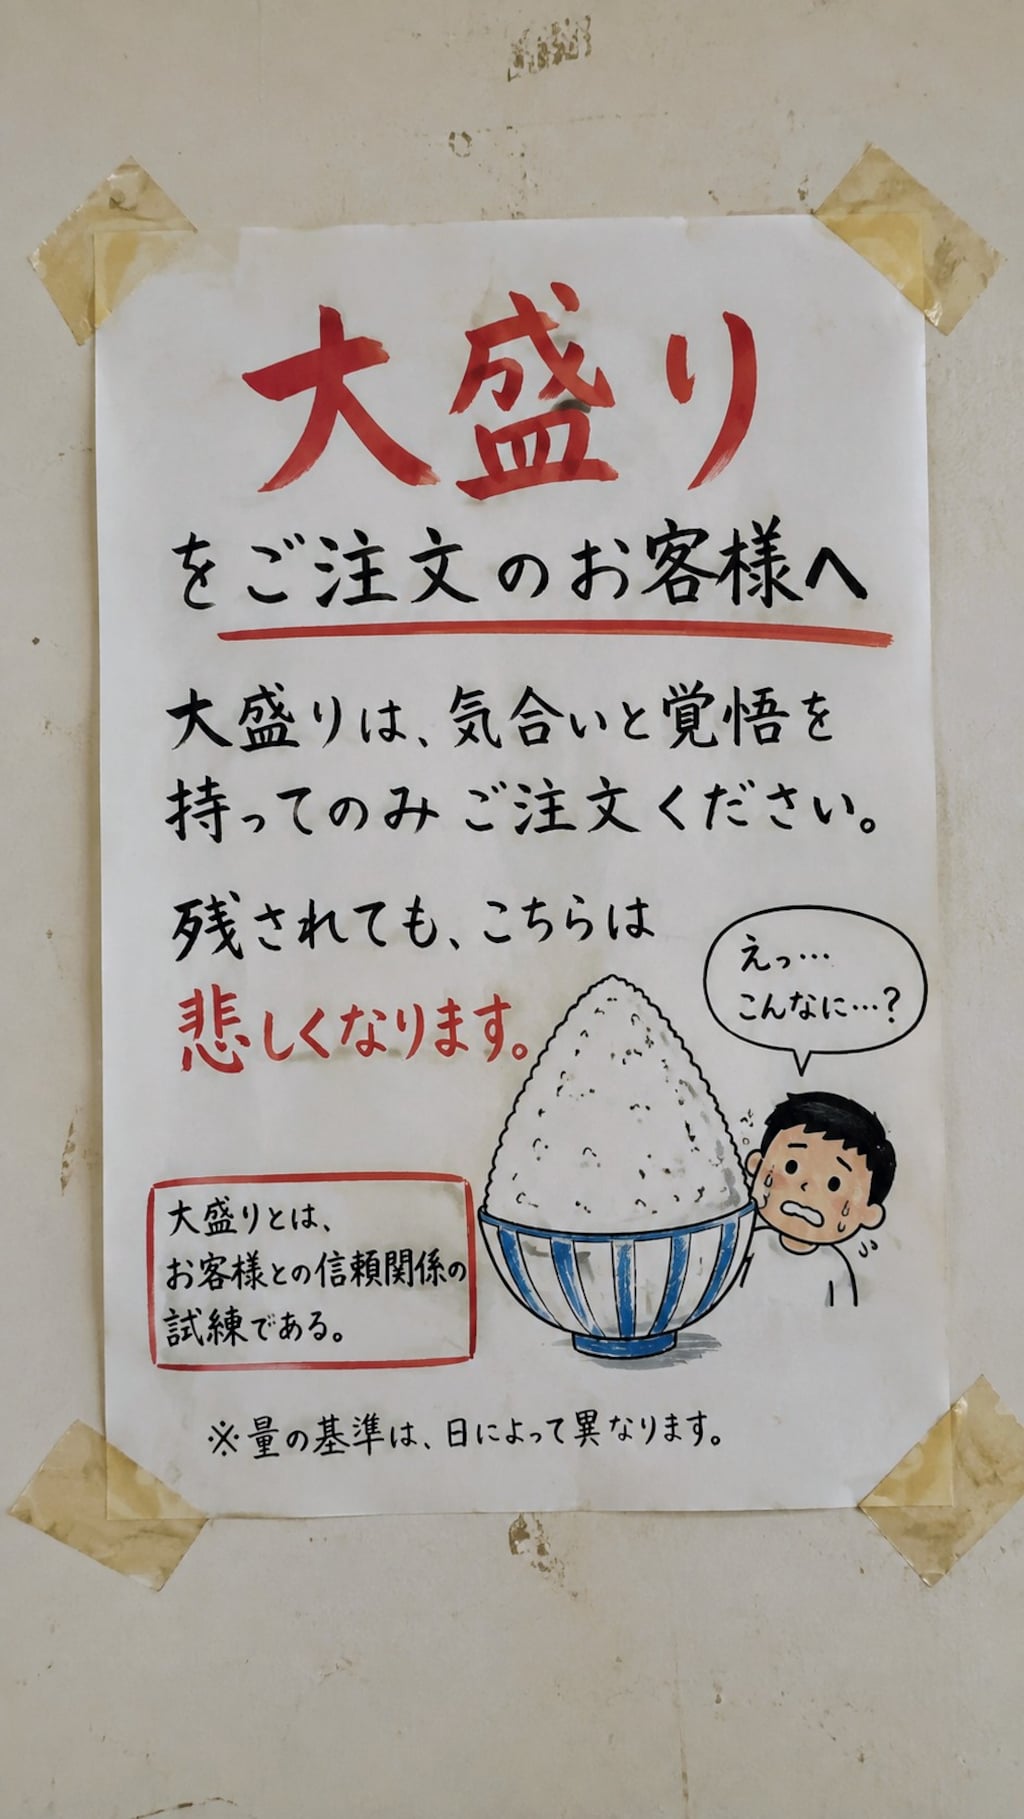 大盛り
をご注文のお客様へ
大盛りは、気合いと覚悟を
持ってのみご注文ください。
残されても、こちらは
悲しくなります。
えっ…
こんなに…?
大盛りとは、
お客様との信頼関係の
試練である。
※量の基準は、日によって異なります。